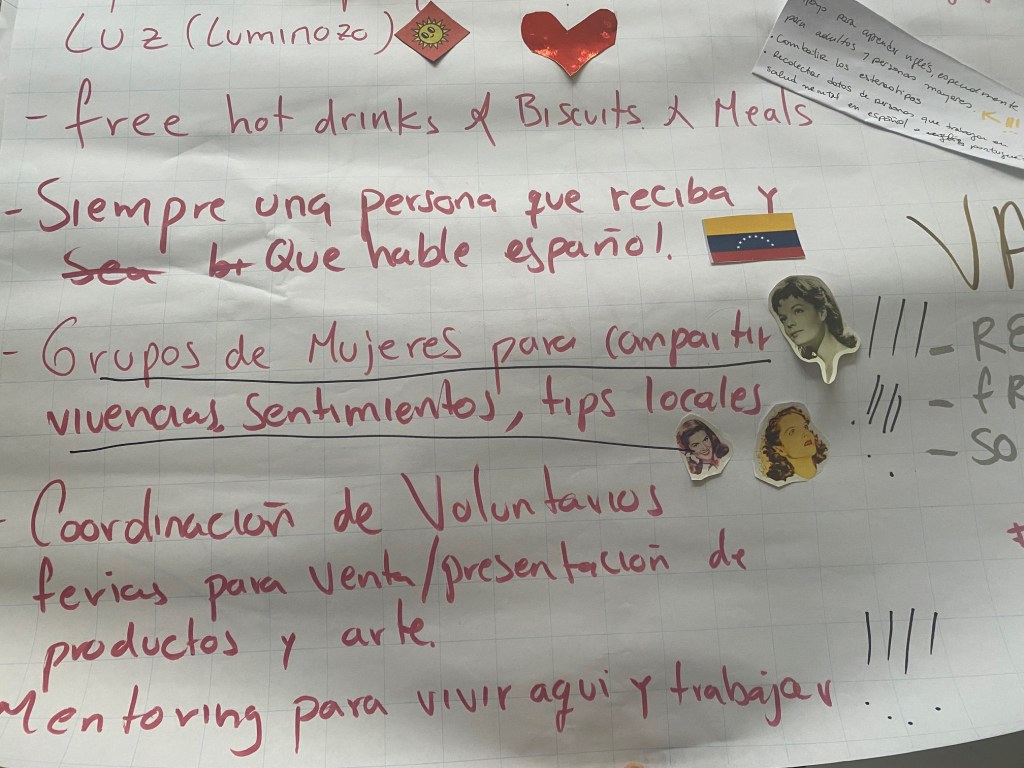 LUZ (Luminozo)
- free hot drinks & Biscuits & Meals
- Siempre una persona que reciba y
Sea Que hable español!
- Grupos de Mujeres para compartir
vivencias, Sentimientos, tips locales
- Coordinación de Voluntarios
ferias para venta/presentación de
productos y arte.
Mentoring para vivir aqui y trabajar
por aprender inglés, especialmente
para adultos y personas mayores.
• Combatir los estereotipos
• Recolectar datos de personas que trabajan en
salud mental en español o portugués
VA
- RE
- fR
- SO